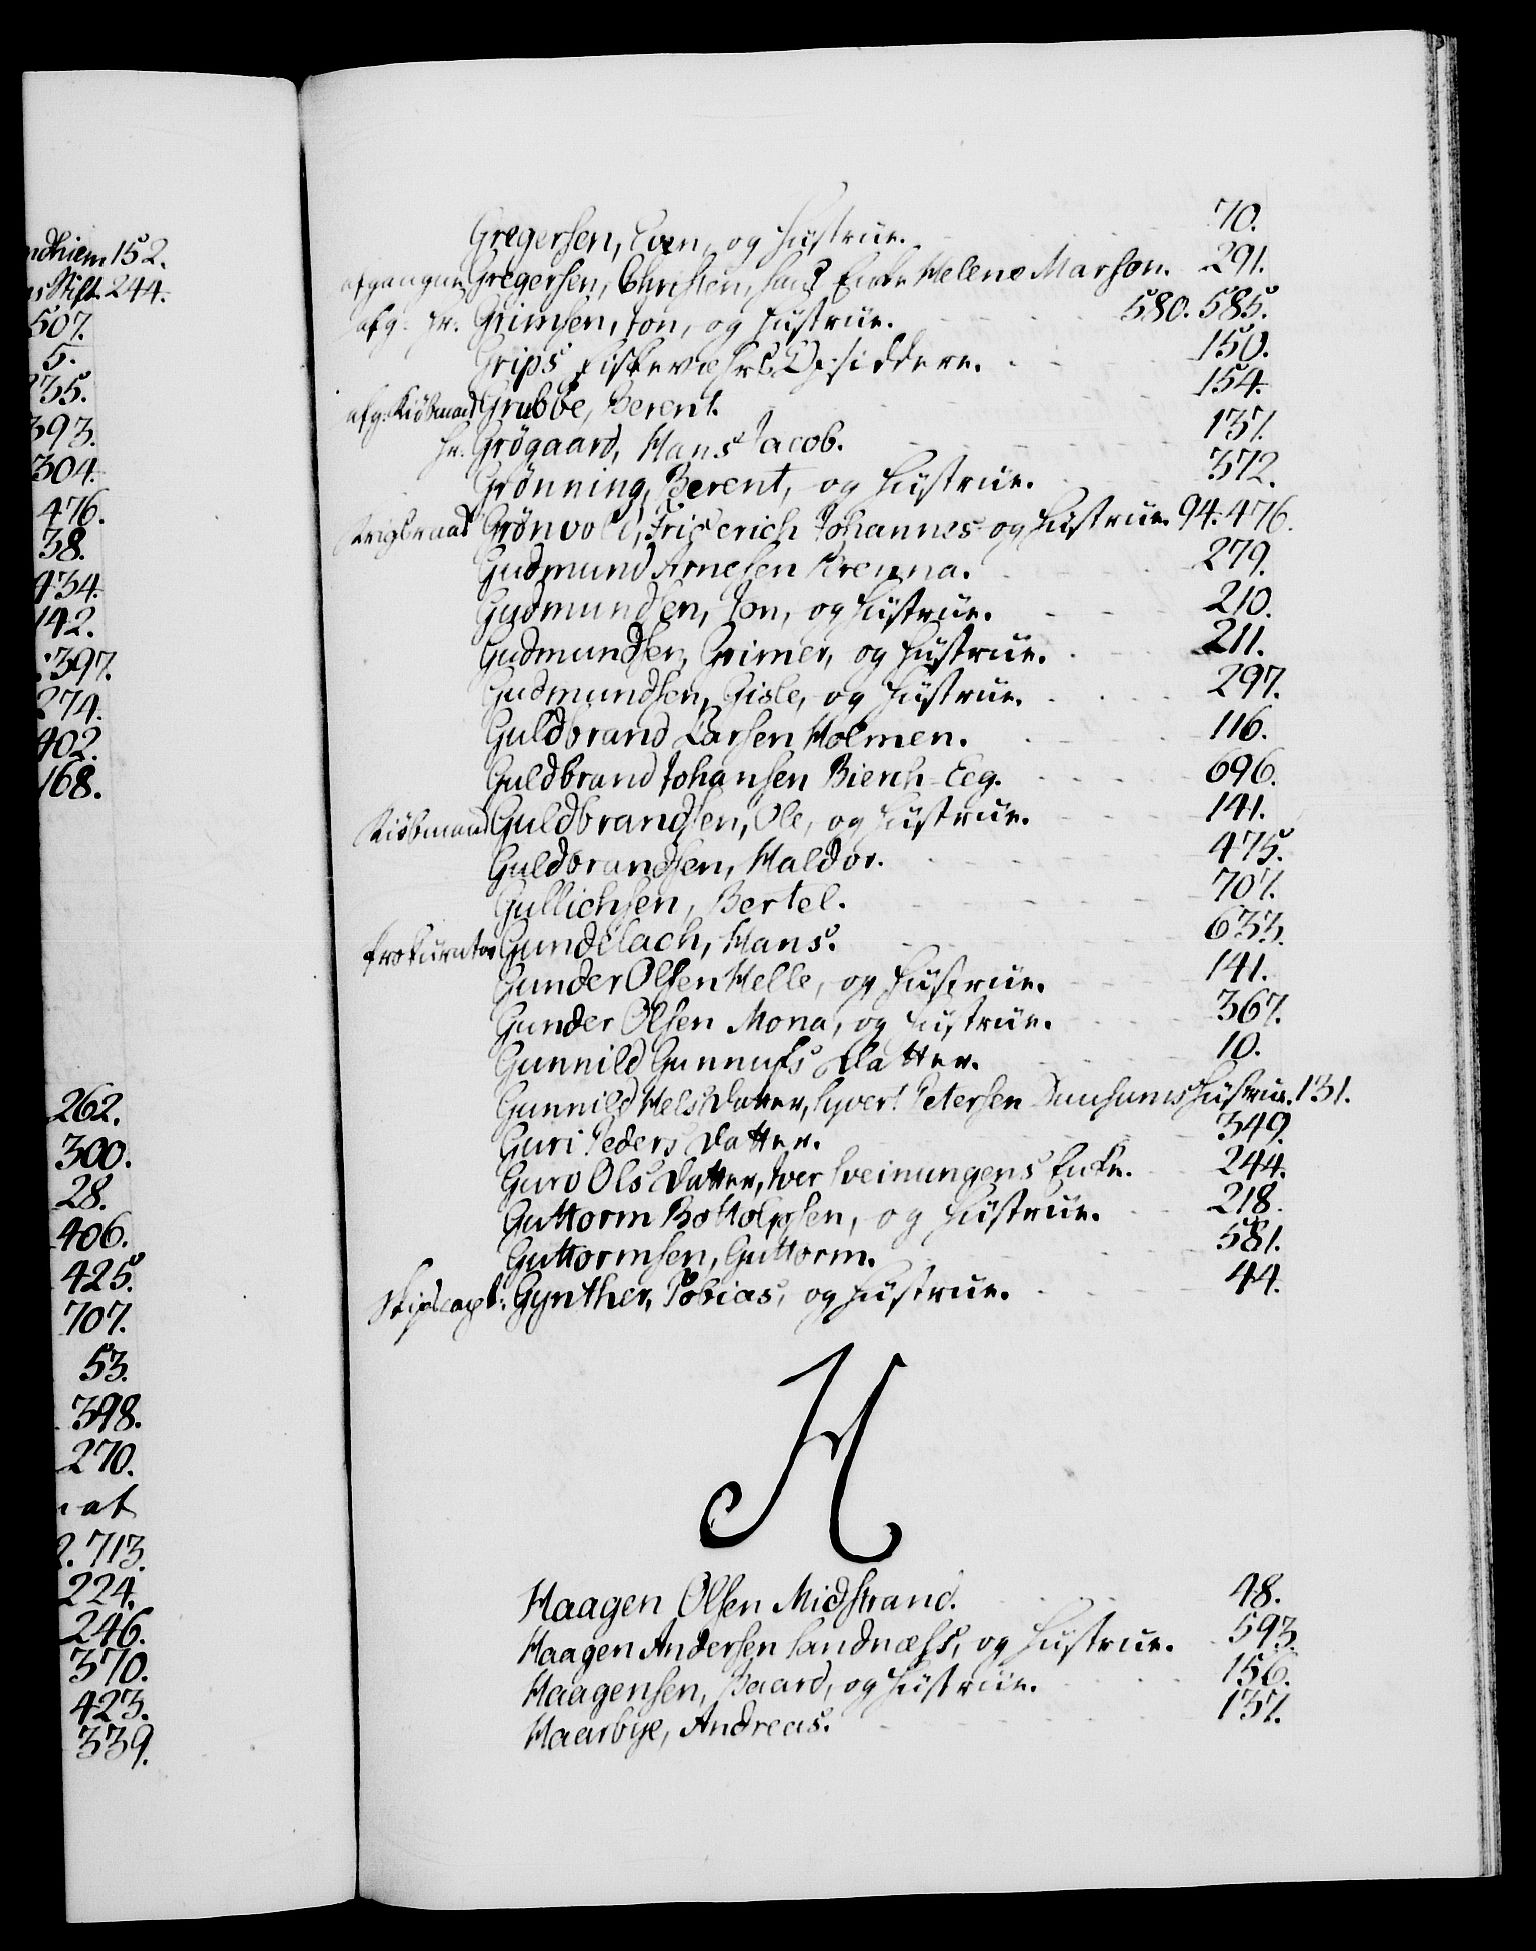 ndhiem 152.
Stift. 244.
507.
5.
235.
393.
304.
476.
38.
434.
142.
397.
274.
402.
168.
262.
300.
28.
406.
425.
707.
53.
398.
270.
at
2. 713.
224.
246.
370.
423.
339.
Gregersen, Even, og Hustrue. 70.
afgangne Gregersen, Christen, hans Enke Helene Marson. 291.
afg. Hr. Grimsen, Jon, og Hustrue. 580. 585.
Grips Fiskevæhrs Opsiddere. 150.
afg. Kiøbmand Grubbe, Berent. 154.
Hr. Grøgaard, Hans Jacob. 137.
Grønning, Berent, og Hustrue. 372.
Krigsraad Grønvold, Friderich Johannes og Hustrue. 94. 476.
Gudmund Arnesen Krenna. 279.
Gudmundsen, Jon, og Hustrue. 210.
Gudmundsen, Grimer, og Hustrue. 211.
Gudmundsen, Gisle, og Hustrue. 297.
Guldbrand Larsen Holmen. 116.
Guldbrand Johansen Bierch-Eeg. 696.
Kiøbmand Guldbrandsen, Ole, og Hustrue. 141.
Guldbrandsen, Haldor. 475.
Gullichsen, Bertel. 707.
Prokurator Gundelach, Hans. 633.
Gunder Olsen Helle, og Hustrue. 141.
Gunder Olsen Mona, og Hustrue. 367.
Gunnild Gunnufs Datter. 10.
Gunnild Nels Datter, Syvert Petersen Hustrue. 131.
Guri Peders Datter. 349.
Guro Ols Datter, Iver Sveinungens Enke. 244.
Guttorm Bottolfsen, og Hustrue. 218.
Guttormsen, Guttorm. 581.
Skipscapt: Gynther, Tobias, og Hustrue. 44.
H
Haagen Olsen Midstrand. 48.
Haagen Andersen Sandnæss, og Hustrue. 593.
Haagensen, Baard, og Hustrue. 156.
Haarbye, Andreas. 137.